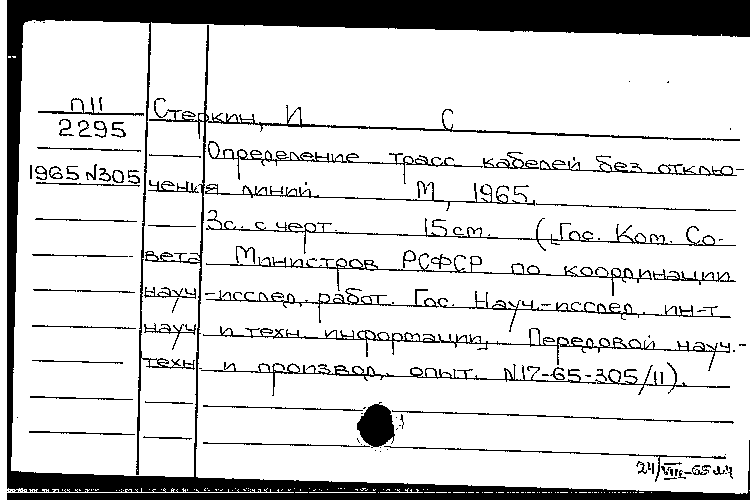 П11
2295
1965 N305
Стеркин, И С
Определение трасс кабелей без отклю-
чения линий. М, 1965.
3с. с черт. 15 см. (Гос. Ком. Со-
вета Министров РСФСР по координации
науч.-исслед. работ. Гос. Науч.-исслед. ин-т
науч. и техн. информации, Передовой науч.-
техн. и производ. опыт. N17-65-305/11).
24/VIII-65